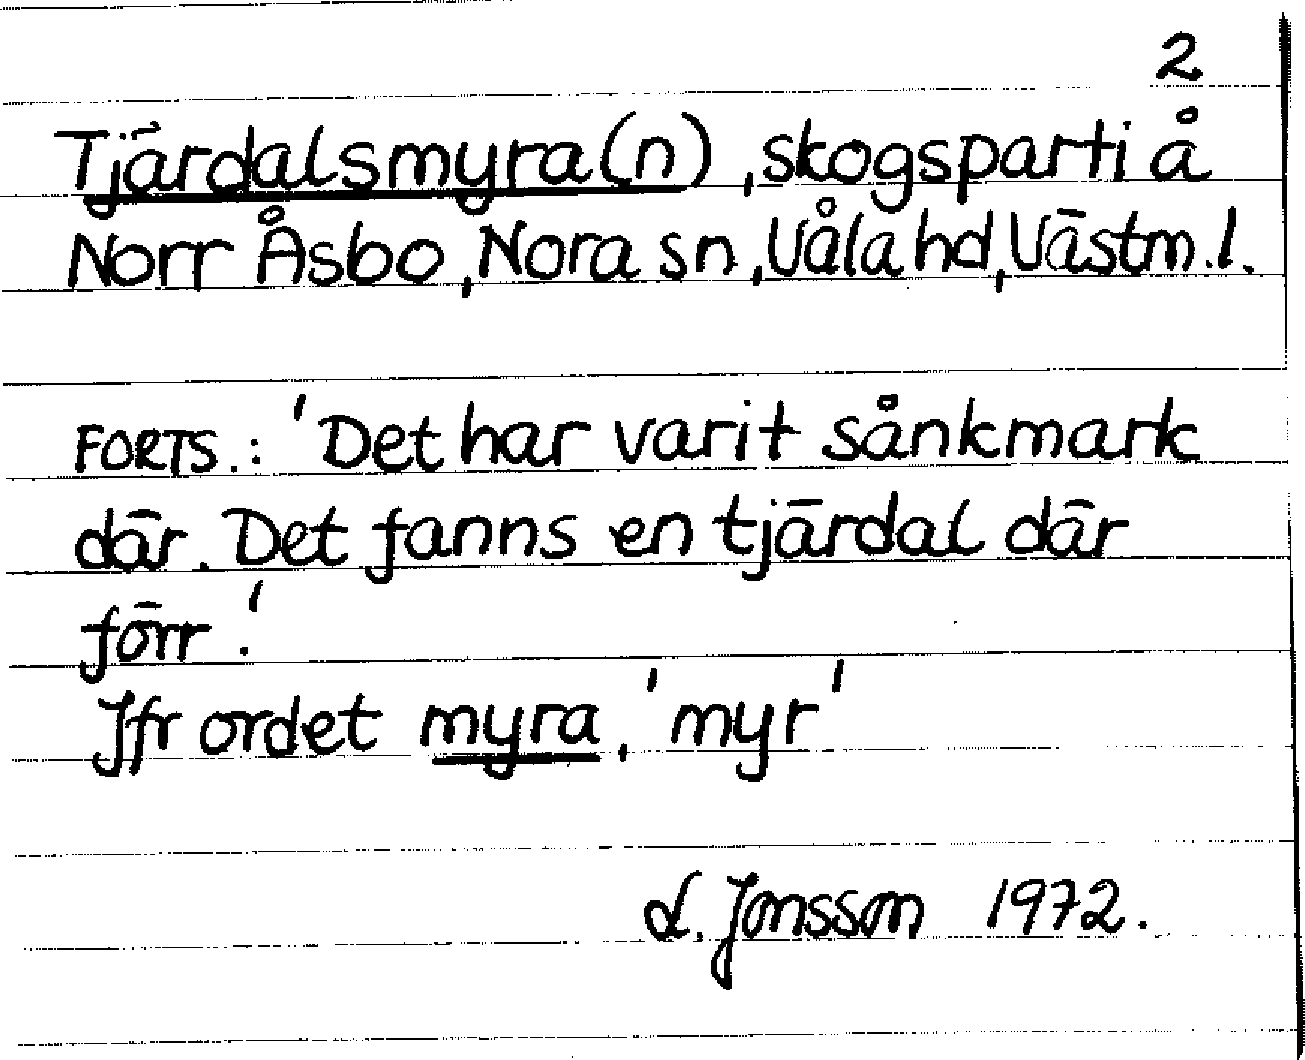 2
Tjärdalsmyra(n), skogsparti å
Norr Åsbo, Nora sn, Våla hd, Västm.l.
FORTS.: 'Det har varit sånkmark
där. Det fanns en tjärdal där
förr.'
Jfr ordet myra, 'myr'
L. Jonsson 1972.